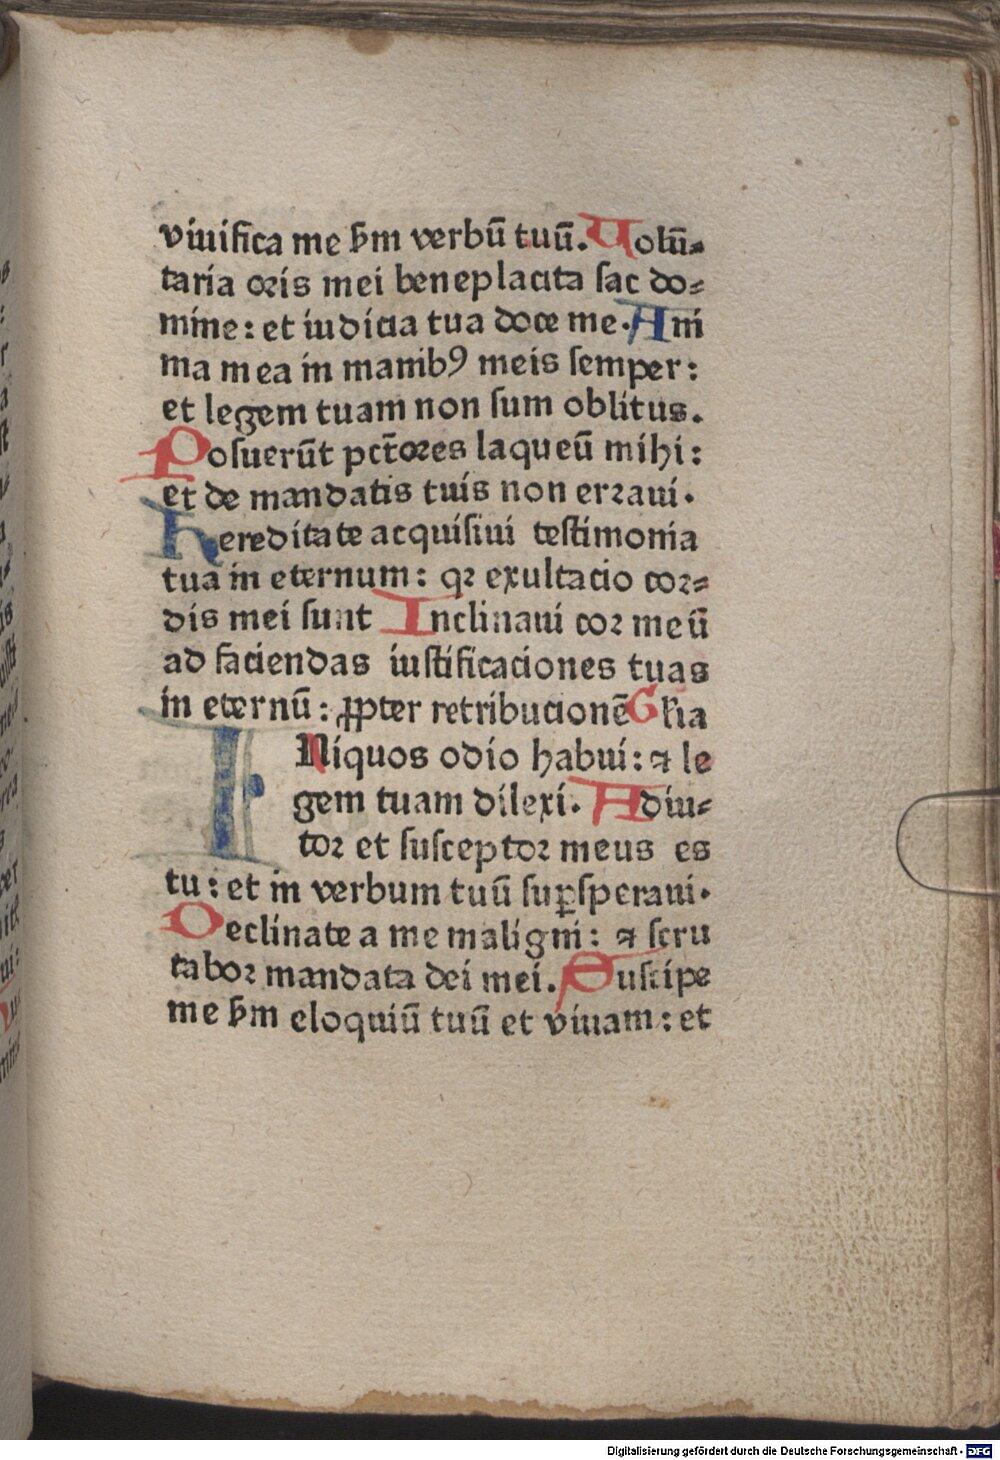 viuifica me ẜm verbū tuū. Uolū⸗
taria oris mei beneplacita fac do⸗
mine: et iudicia tua doce me. Ani
ma mea in manibꝰ meis semper:
et legem tuam non sum oblitus.
Posuerūt pct̄ores laqueū mihi:
et de mandatis tuis non erraui.
Hereditate acquisiui testimonia
tua in eternum: qꝛ exultacio cor⸗
dis mei sunt Inclinaui cor meū
ad faciendas iustificaciones tuas
in eternū: ꝓpter retribucionē Gl̄ia
INiquos odio habui: ⁊ le
gem tuam dilexi. Adiu⸗
tor et susceptor meus es
tu: et in verbum tuū suꝑsperaui.
Declinate a me maligni: ⁊ scru
tabor mandata dei mei. Suscipe
me ẜm eloquiū tuū et viuam: et
Digitalisierung gefördert durch die Deutsche Forschungsgemeinschaft - DFG